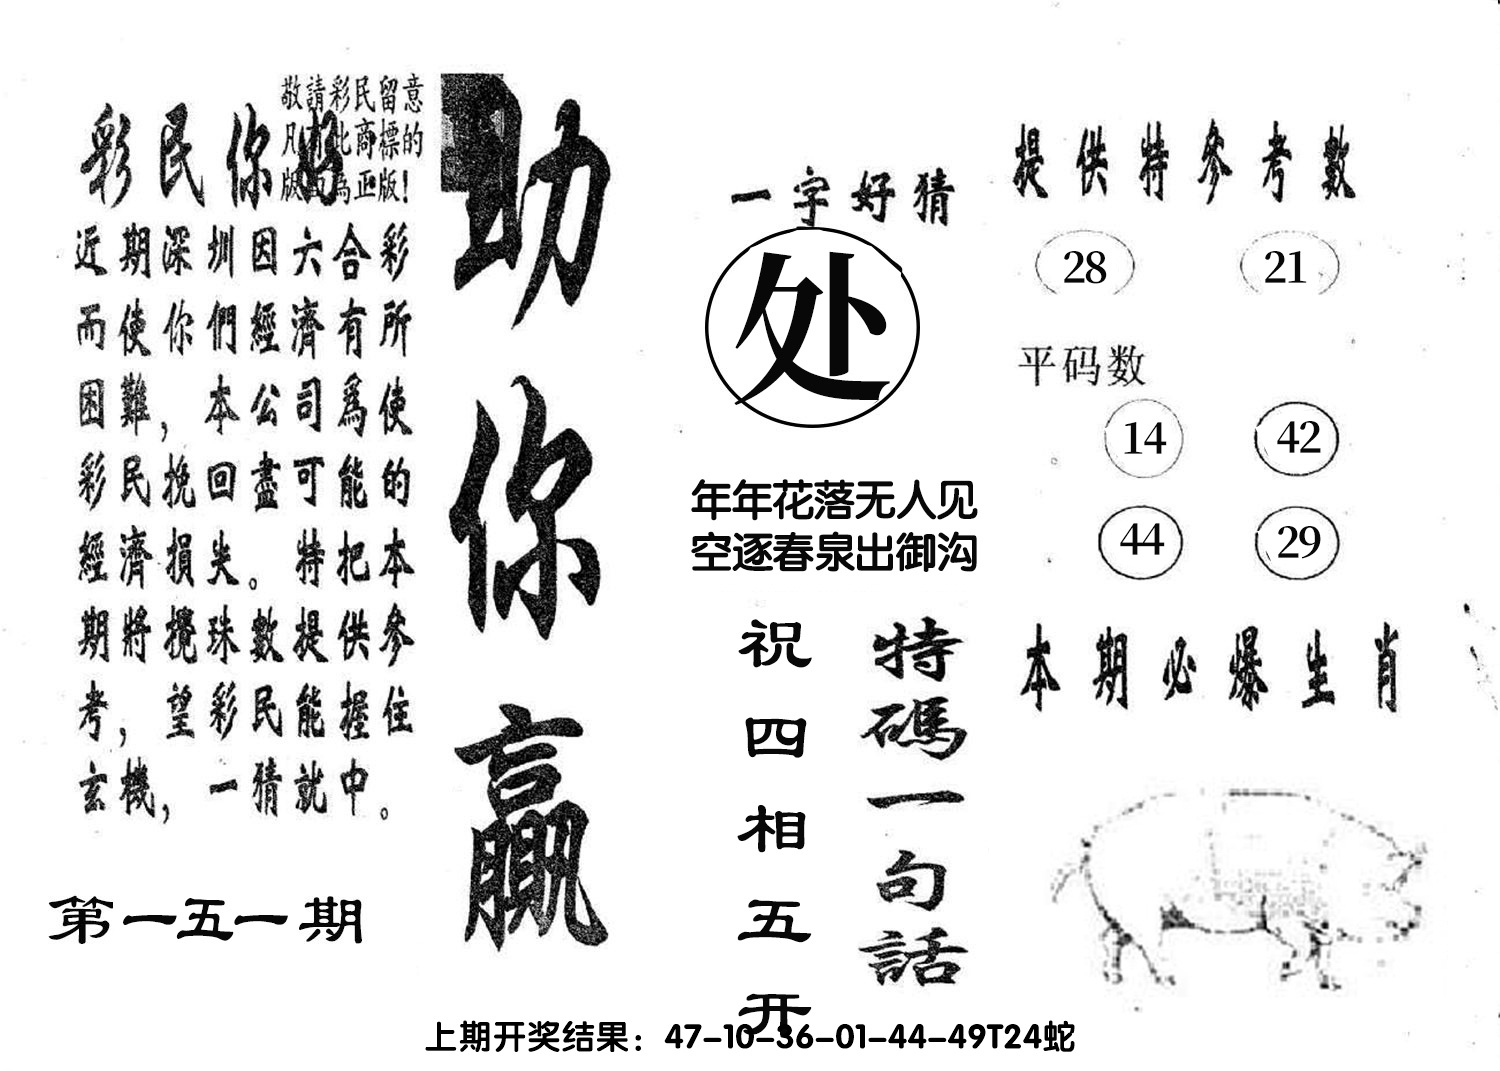 敬請彩民留意
凡有此商標的
版面為正版！
彩民你好
近期深圳因六合彩
而使你們經濟有所
困難，本公司爲使
彩民挽回盡可能的
經濟損失。特把本
期將攪珠數提供參
考，望彩民能握住
玄機，一猜就中。
第一五一期
助你贏
一字好猜
处
年年花落无人见
空逐春泉出御沟
特碼一句話
祝四相五开
提供特參考數
28 21
平码数
14 42
44 29
本期必爆生肖
上期开奖结果：47-10-36-01-44-49T24蛇